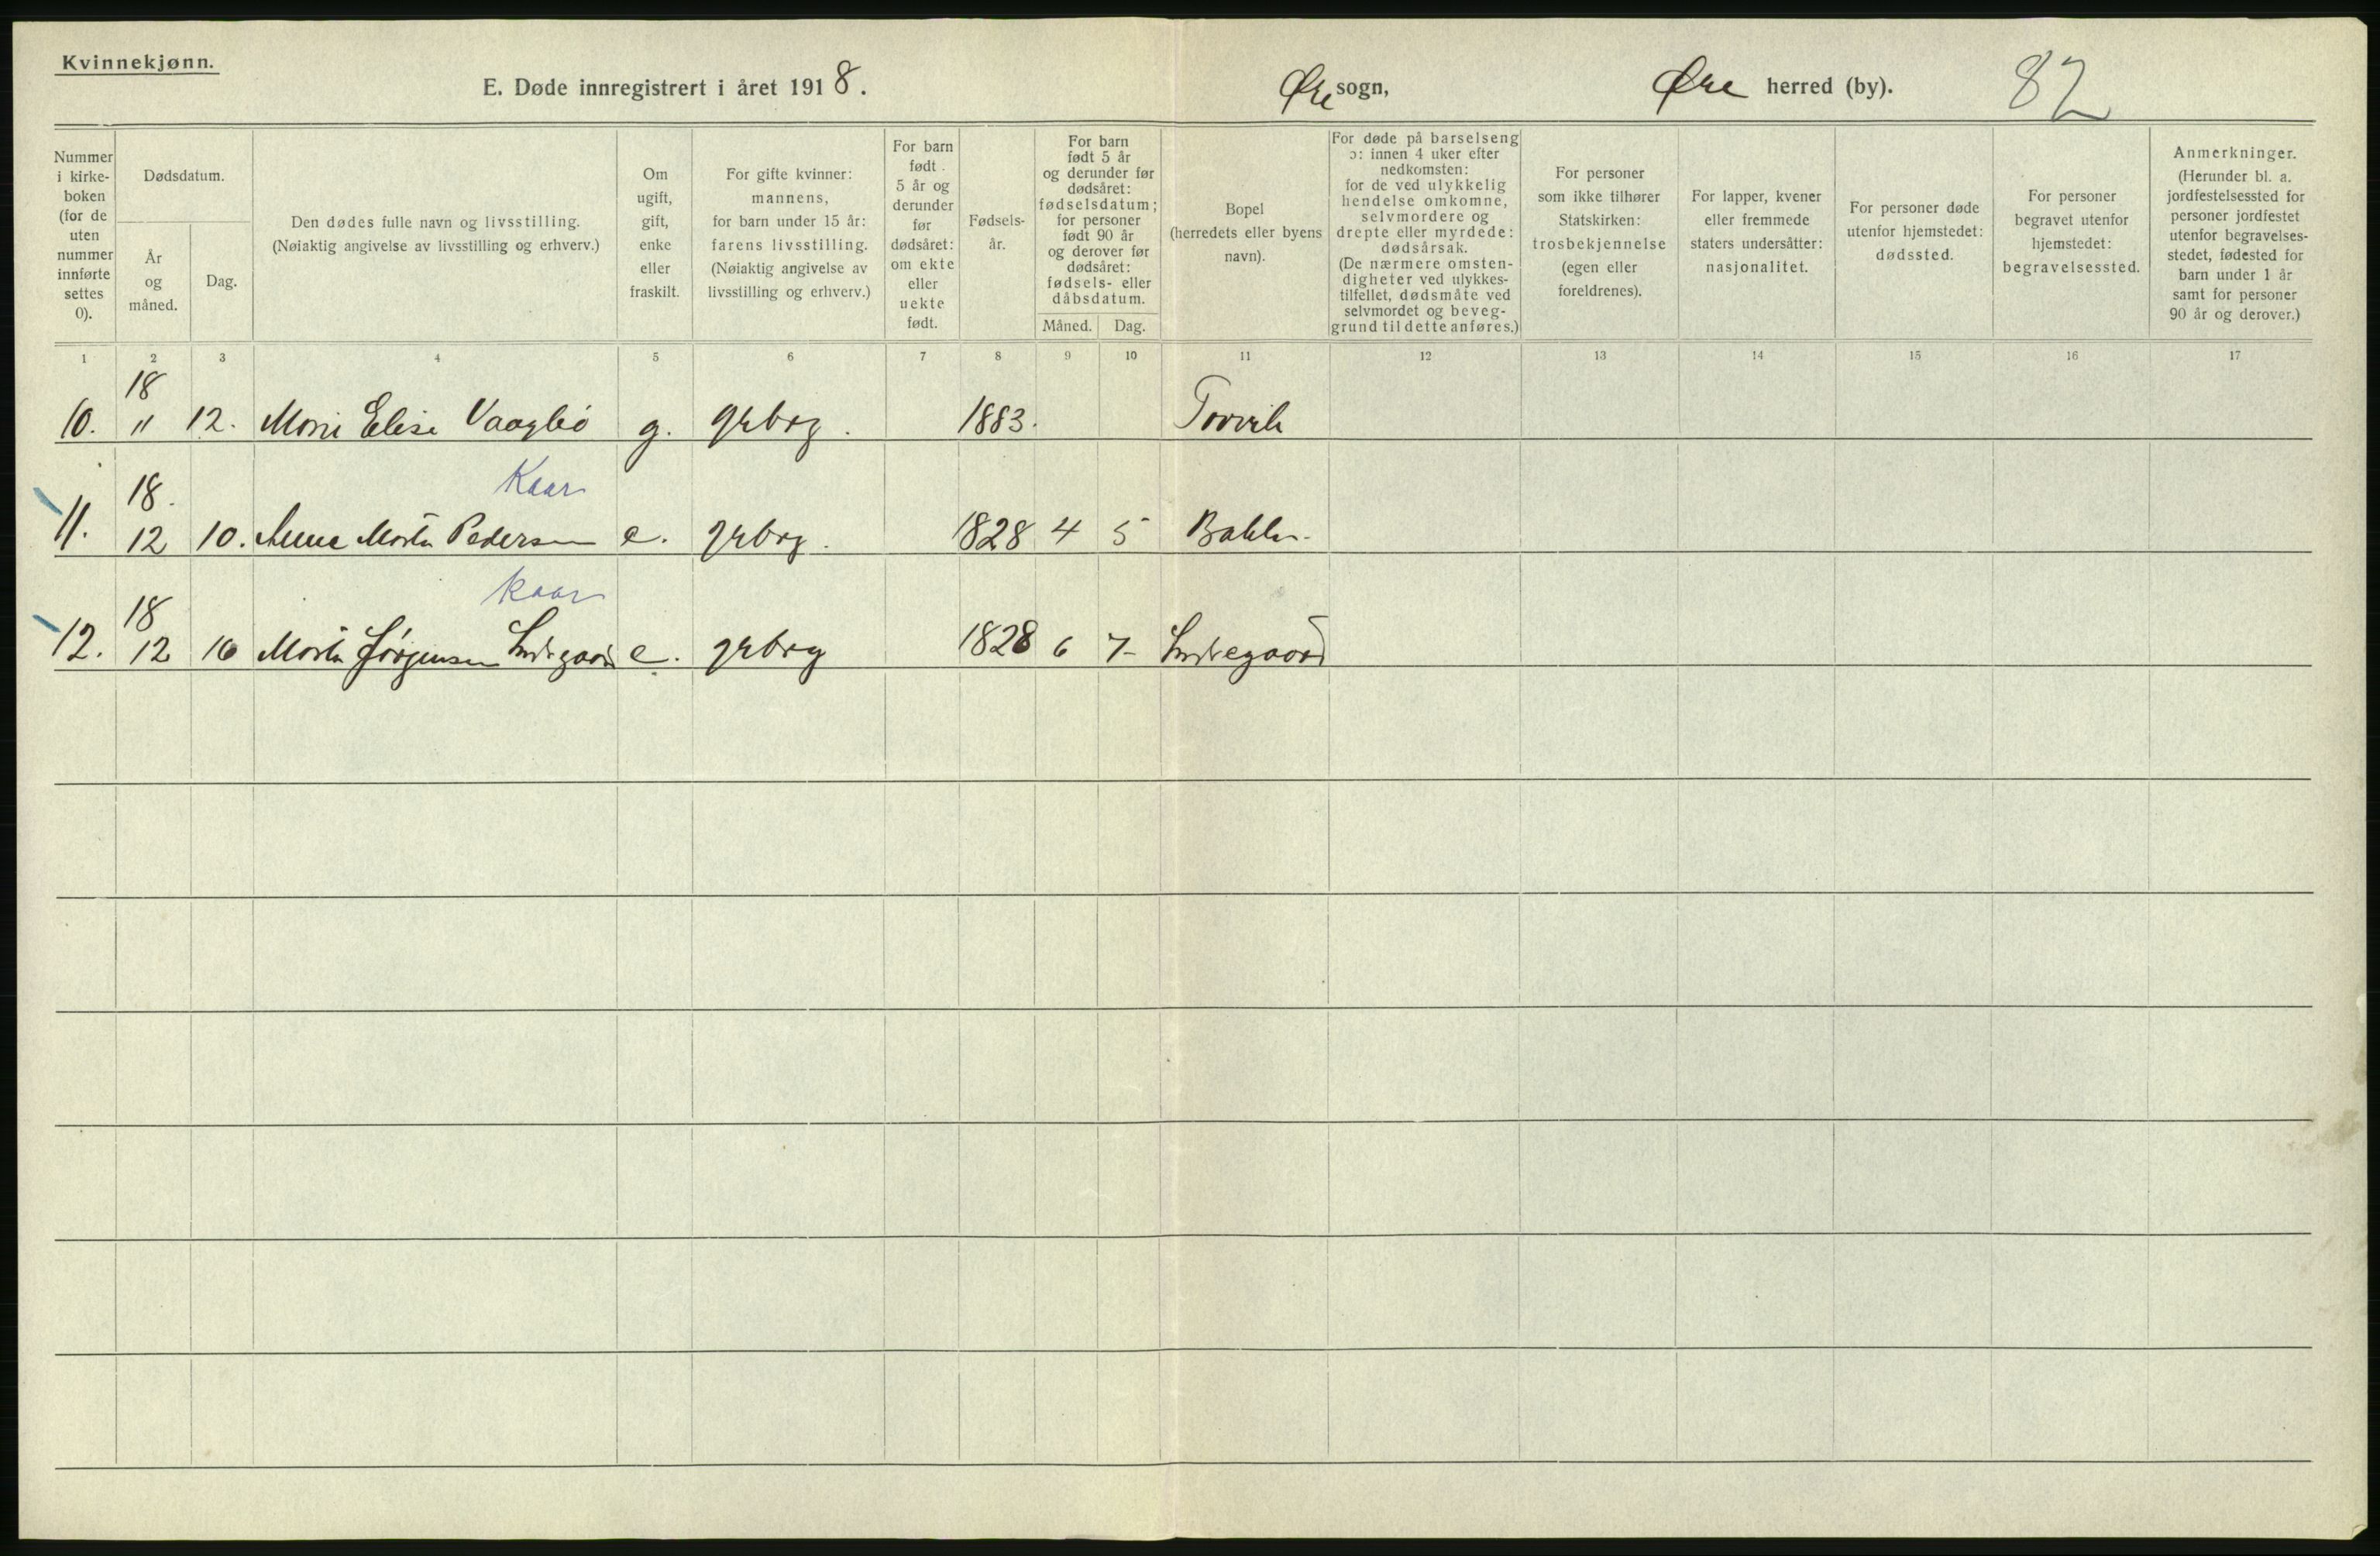 Kvinnekjønn.
E. Døde innregistrert i året 1918. Øre sogn, Øre herred (by). 82
Nummer i kirke- boken (for de uten nummer innførte settes 0).
Dødsdatum.
År og måned.
Dag.
Den dødes fulle navn og livsstilling.
(Nøiaktig angivelse av livsstilling og erhverv.)
Om ugift, gift, enke eller fraskilt.
For gifte kvinner: mannens, for barn under 15 år: farens livsstilling. (Nøiaktig angivelse av livsstilling og erhverv.)
For barn født 5 år og derunder før dødsåret: om ekte eller uekte født.
Fødsels- år.
For barn født 5 år og derunder før dødsåret: fødselsdatum; for personer født 90 år og derover før dødsåret: fødsels- eller dåbsdatum.
Måned. Dag.
Bopel (herredets eller byens navn).
For døde på barselseng ɔ: innen 4 uker efter nedkomsten: for de ved ulykkelig hendelse omkomne, selvmordere og drepte eller myrdede: dødsårsak. (De nærmere omsten- digheter ved ulykkes- tilfellet, dødsmåte ved selvmordet og beveg- grund til dette anføres.)
For personer som ikke tilhører Statskirken: trosbekjennelse (egen eller foreldrenes).
For lapper, kvener eller fremmede staters undersåtter: nasjonalitet.
For personer døde utenfor hjemstedet: dødssted.
For personer begravet utenfor hjemstedet: begravelsessted.
Anmerkninger. (Herunder bl. a. jordfestelsessted for personer jordfestet utenfor begravelses- stedet, fødested for barn under 1 år samt for personer 90 år og derover.)
1 2 3 4 5 6 7 8 9 10 11 12 13 14 15 16 17
18
10. 11 12. Marie Elise Vaagbø g. grbrg. 1883. Torvik
18. Kaar
11. 12 10. Anne Marta Pedersen e. grbrg. 1828 4 5 Bakken
18 Kaar
12. 12 16 Marta Jørgensen e. grbrg 1828 6 7